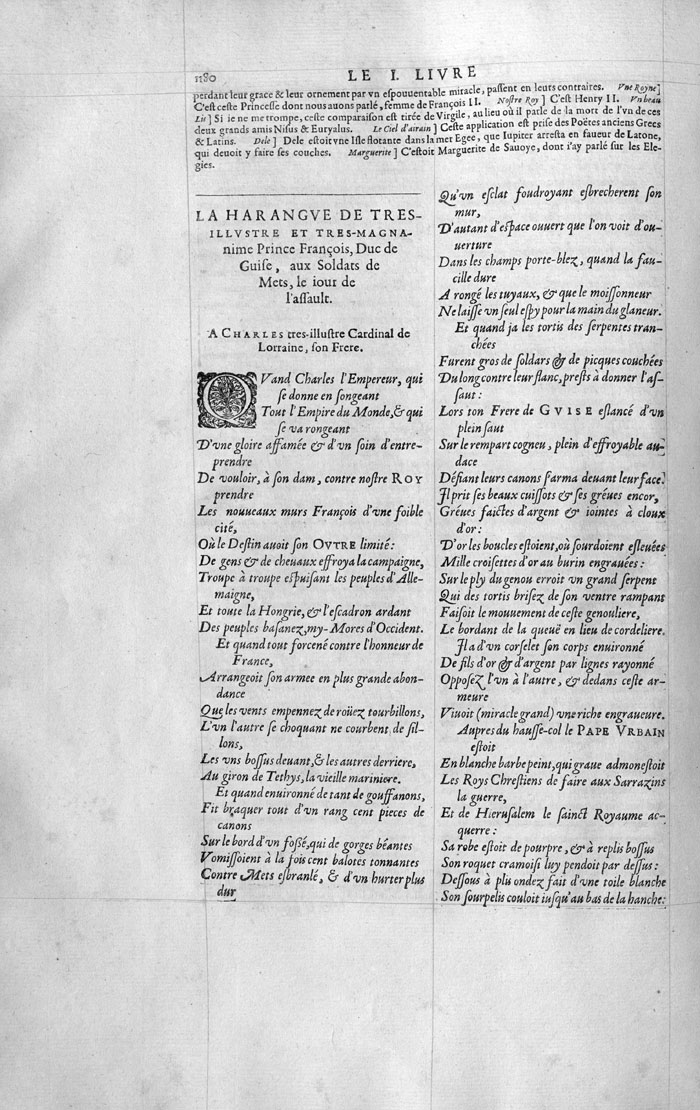 1180
LE I. LIVRE
perdant leur grace & leur ornement par vn espouuentable miracle, passent en leurs contraires. Vne Royne]
C'est ceste Princesse dont nous auons parlé, femme de François II. Nostre Roy ] C'est Henry II. Vn beau
Lis ] Si ie ne me trompe, ceste comparaison est tirée de Virgile, au lieu où il parle de la mort de l'vn de ces
deux grands amis Nisus & Euryalus. Le Ciel d'airain ] Ceste application est prise des Poëtes anciens Grecs
& Latins. Dele ] Dele estoit vne Isle flotante dans la mer Egee, que Iupiter arresta en faueur de Latone,
qui deuoit y faire ses couches. Marguerite ] C'estoit Marguerite de Sauoye, dont i'ay parlé sur les Ele-
gies.
LA HARANGVE DE TRES-
ILLVSTRE ET TRES-MAGNA-
nime Prince François, Duc de
Guise, aux Soldats de
Mets, le iour de
l'assault.
A CHARLES tres-illustre Cardinal de
Lorraine, son Frere.
QVand Charles l'Empereur, qui
se donne en songeant
Tout l'Empire du Monde, & qui
se va rongeant
D'vne gloire affamée & d'vn soin d'entre-
prendre
De vouloir, à son dam, contre nostre ROY
prendre
Les nouueaux murs François d'vne foible
cité,
Où le Destin auoit son OVTRE limité:
De gens & de cheuaux effroya la campaigne,
Troupe à troupe espuisant les peuples d'Alle-
maigne,
Et toute la Hongrie, & l'escadron ardant
Des peuples basanez, my-Mores d'Occident.
Et quand tout forcené contre l'honneur de
France,
Arrangeoit son armee en plus grande abon-
dance
Que les vents empennez de roüez tourbillons,
L'vn l'autre se choquant ne courbent de sil-
lons,
Les vns bossus deuant, & les autres derriere,
Au giron de Tethys, la vieille mariniere.
Et quand enuironné de tant de gouffanons,
Fit braquer tout d'vn rang cent pieces de
canons
Sur le bord d'vn fossé, qui de gorges béantes
Vomissoient à la fois cent balotes tonnantes
Contre Mets esbranlé, & d'vn hurter plus
dur
Qu'vn esclat foudroyant esbrecherent son
mur,
D'autant d'espace ouuert que l'on voit d'ou-
uerture
Dans les champs porte-blez, quand la fau-
cille dure
A rongé les tuyaux, & que le moissonneur
Ne laisse vn seul espy pour la main du glaneur.
Et quand ja les tortis des serpentes tran-
chées
Furent gros de soldars & de picques couchées
Du long contre leur flanc, prests à donner l'as-
saut:
Lors ton Frere de GVISE eslancé d'vn
plein saut
Sur le rempart cogneu, plein d'effroyable au-
dace
Défiant leurs canons s'arma deuant leur face.
Il prit ses beaux cuissots & ses gréues encor,
Gréues faictes d'argent & iointes à cloux
d'or:
D'or les boucles estoient, où sourdoient esleuées
Mille croisettes d'or au burin engrauées:
Sur le ply du genou erroit vn grand serpent
Qui des tortis brisez de son ventre rampant
Faisoit le mouuement de ceste genouliere,
Le bordant de la queuë en lieu de cordeliere.
Il a d'vn corselet son corps enuironné
De fils d'or & d'argent par lignes rayonné
Opposez l'vn à l'autre, & dedans ceste ar-
meure
Viuoit (miracle grand) vne riche engraueure.
Aupres du hausse-col le PAPE VRBAIN
estoit
En blanche barbe peint, qui graue admonestoit
Les Roys Chrestiens de faire aux Sarrazins
la guerre,
Et de Hierusalem le sainct Royaume ac-
querre:
Sa robe estoit de pourpre, & à replis bossus
Son roquet cramoisi luy pendoit par dessus:
Dessous à plis ondez fait d'vne toile blanche
Son sourpelis couloit iusqu'au bas de la hanche: